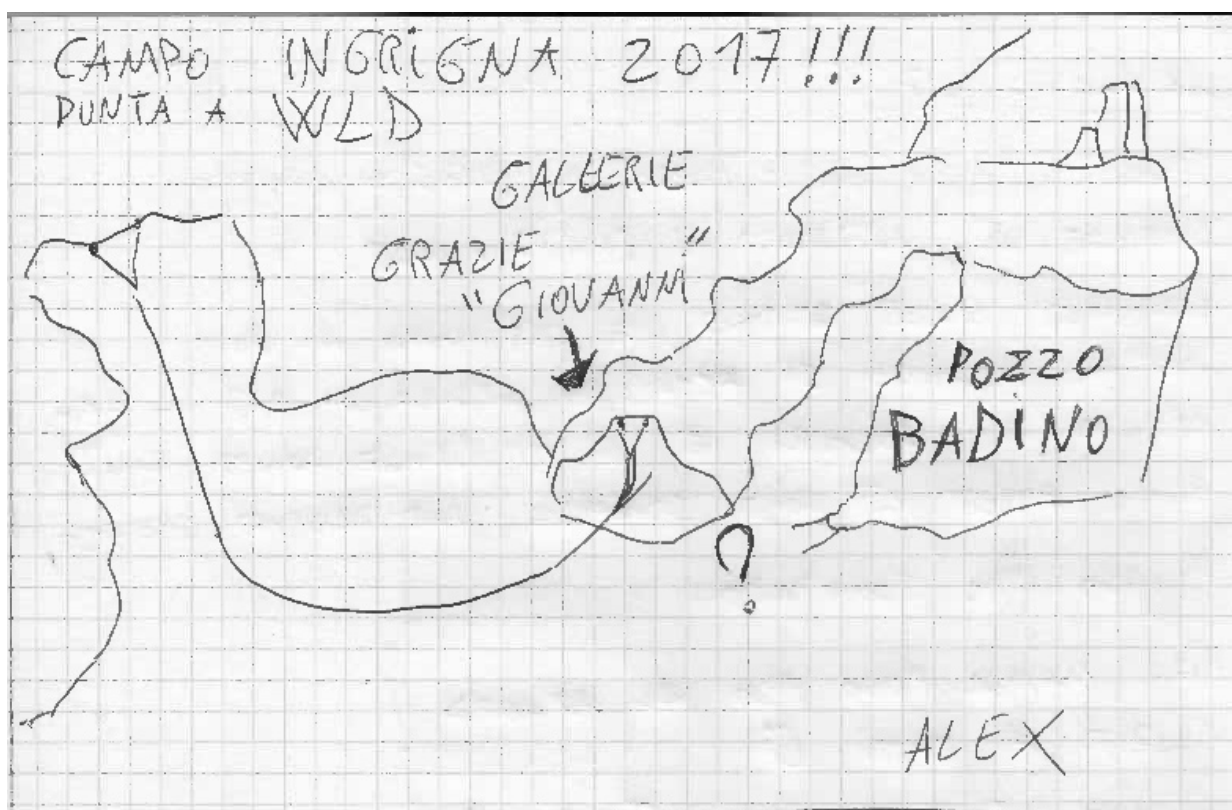 CAMPO INGRIGNA 2017!!!
PUNTA A WLD
GALLERIE
GRAZIE
"GIOVANNI"
POZZO
BADINO
?
ALEX